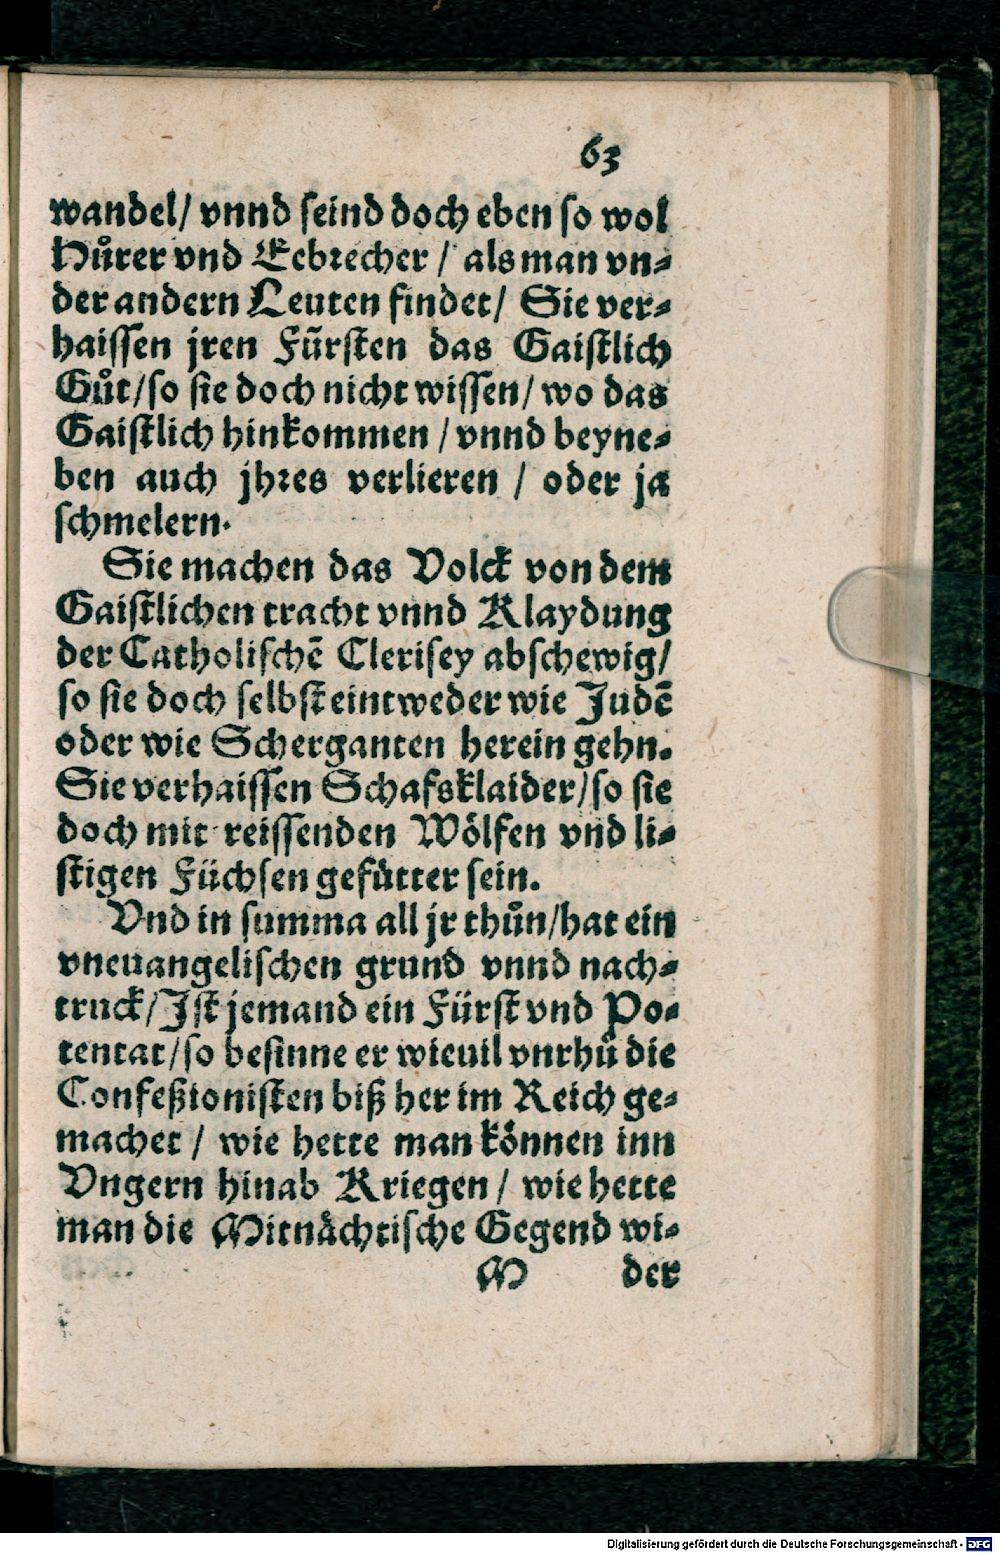 63
wandel/ vnnd seind doch eben so wol
Hůrer vnd Eebrecher / als man vn⸗
der andern Leuten findet/ Sie ver⸗
haissen jren Fürsten das Gaistlich
Gůt/so sie doch nicht wissen/ wo das
Gaistlich hinkommen / vnnd beyne⸗
ben auch jhres verlieren / oder ja
schmelern.
Sie machen das Volck von dem
Gaistlichen tracht vnnd Klaydung
der Catholischē Clerisey abschewig/
so sie doch selbst eintweder wie Judē
oder wie Scherganten herein gehn.
Sie verhaissen Schafsklaider/so sie
doch mit reissenden Wölfen vnd li⸗
stigen Füchsen gefütter sein.
Vnd in summa all jr thůn/hat ein
vneuangelischen grund vnnd nach⸗
truck/Ist jemand ein Fürst vnd Po⸗
tentat/so besinne er wieuil vnrhů die
Confeßionisten biß her im Reich ge⸗
machet / wie hette man können inn
Vngern hinab Kriegen / wie hette
man die Mitnächtische Gegend wi⸗
M der
Digitalisierung gefördert durch die Deutsche Forschungsgemeinschaft - DFG